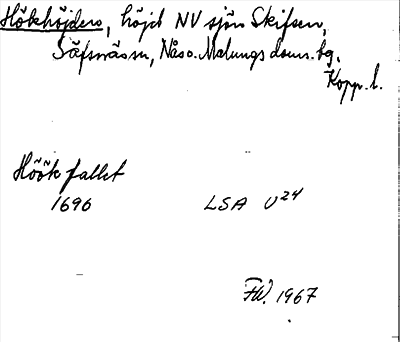 Hökhöjden, höjd NV sjön Skifsen,
Säfsnässn, Nås o. Malungs doms. hg.
Kopp. l.
Höök fallet
1696 LSA U24
FW. 1967